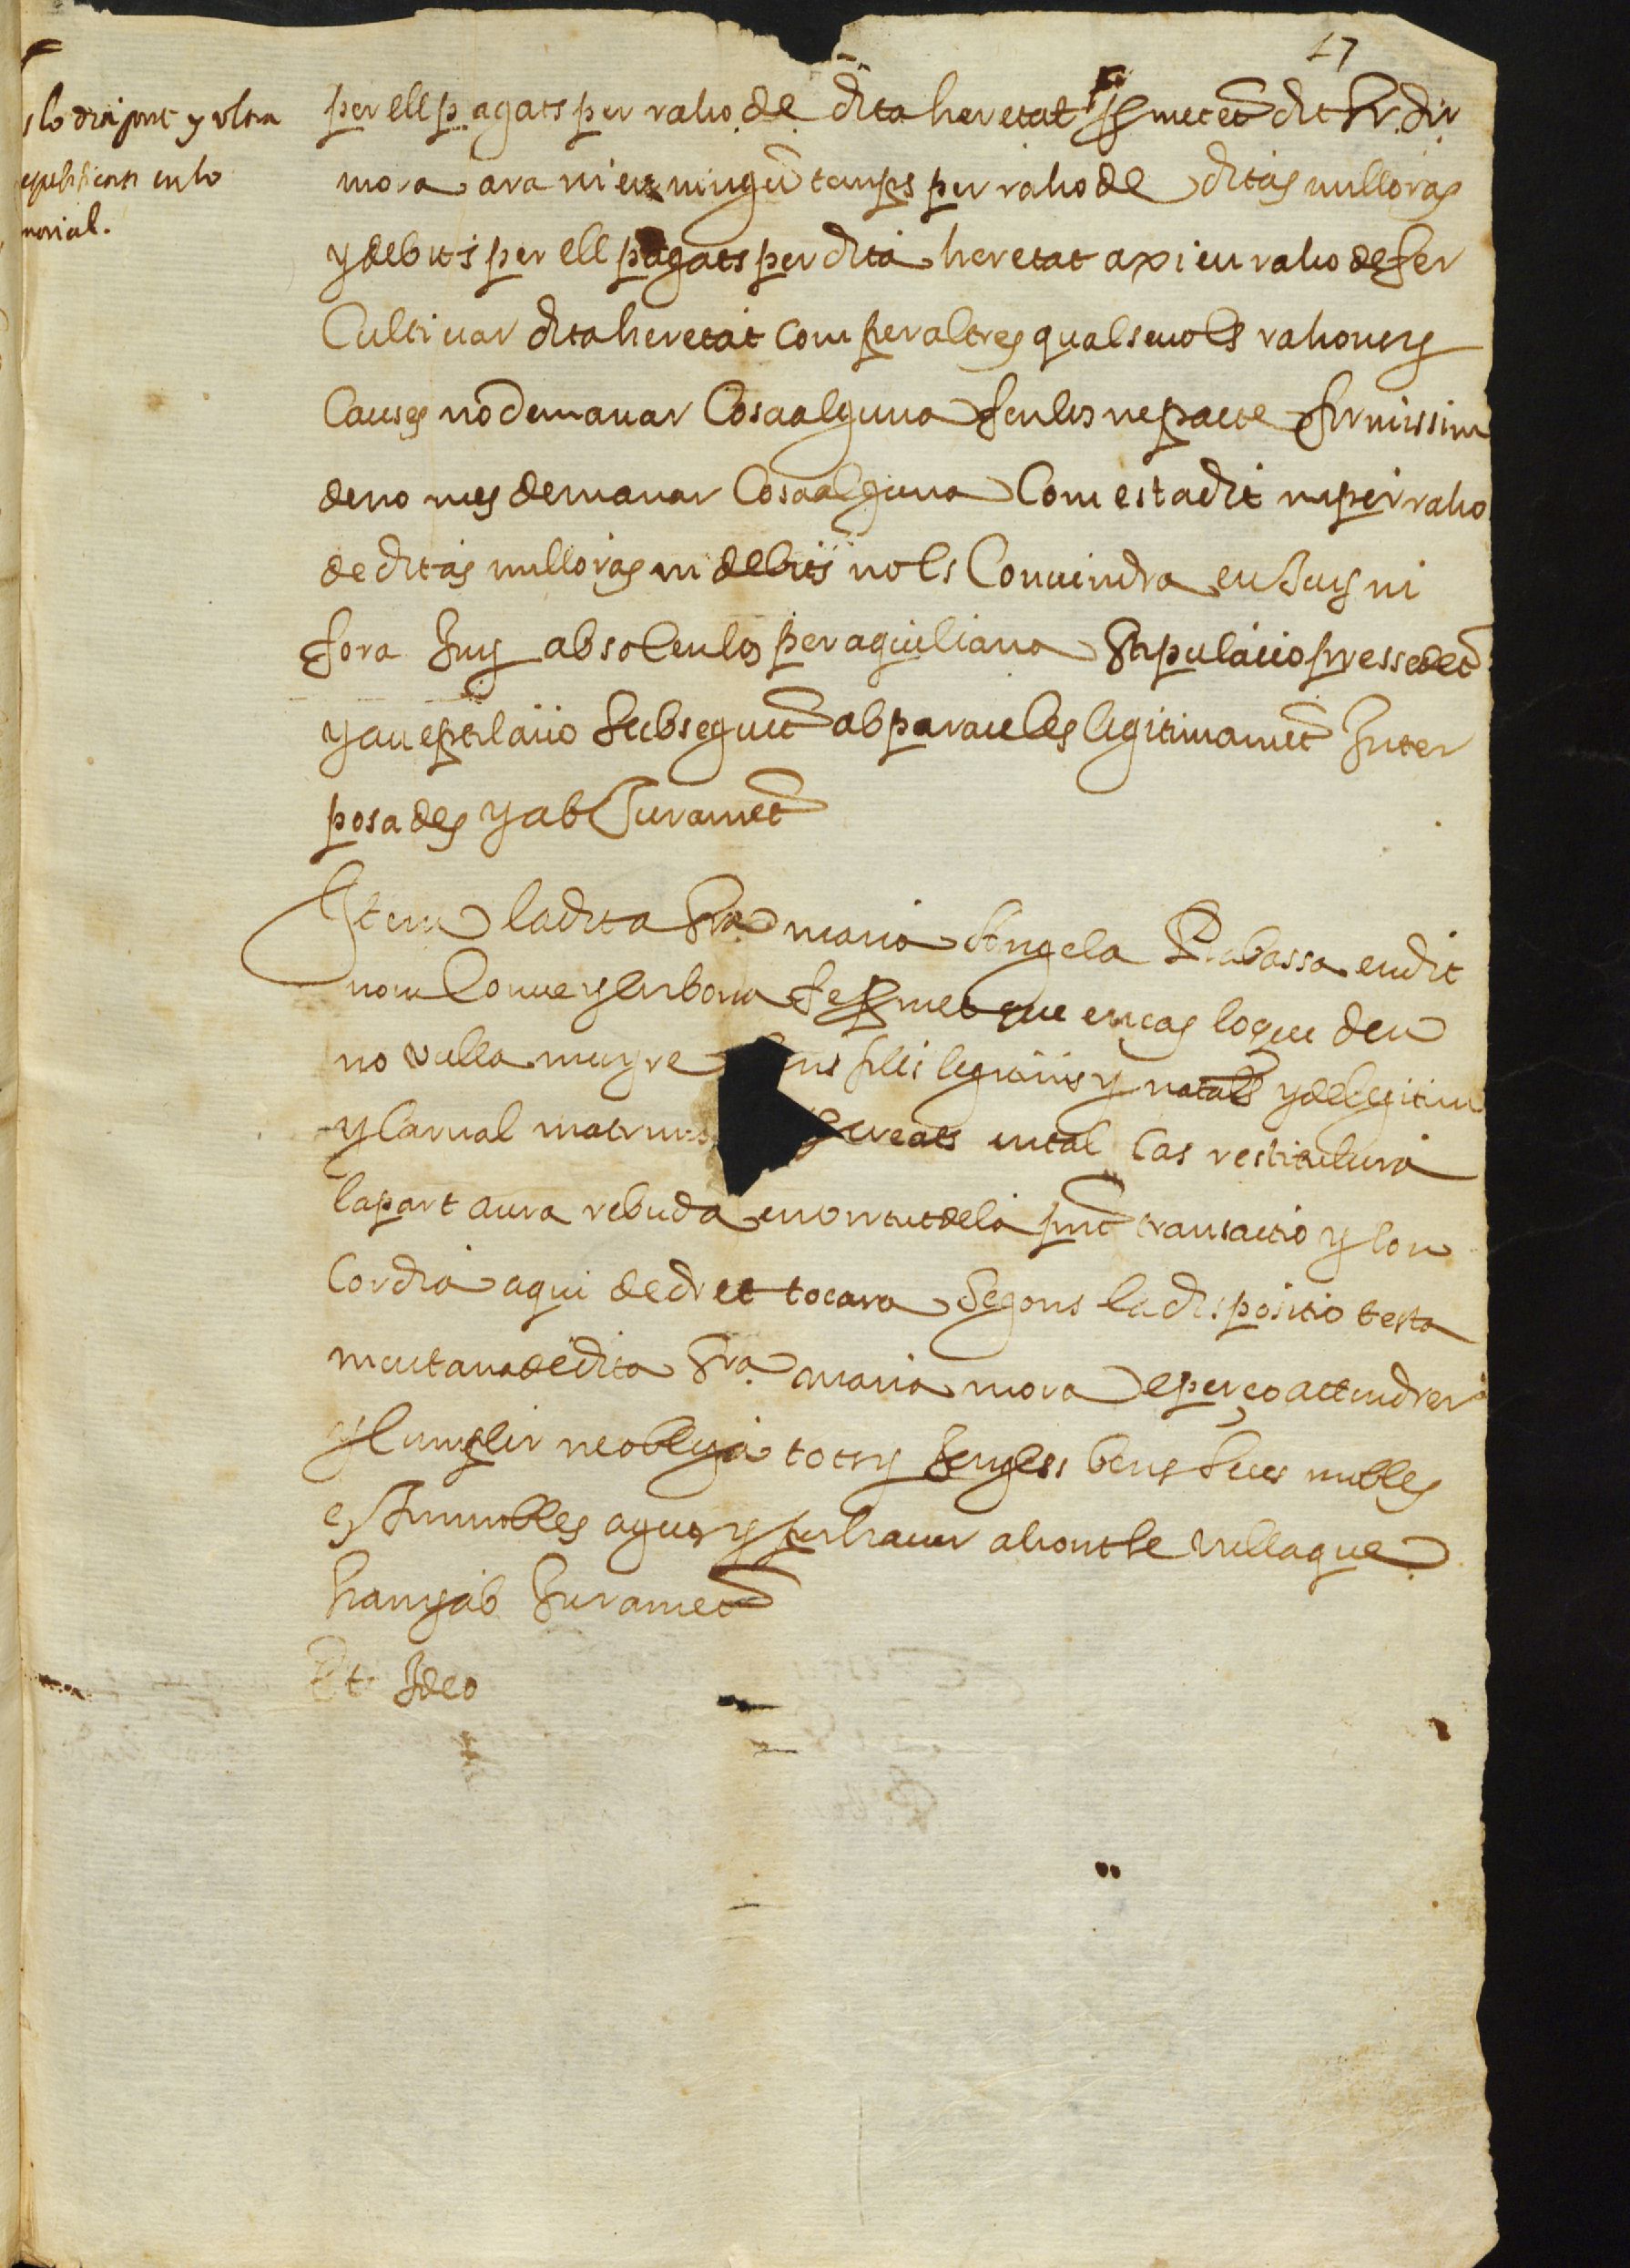 17
s lo dia prnt y ultra
en lo
morial.
per ell pagats per raho de dita heretat prometet dit Sr. dir
mora ara ni en ningu temps per raho de ditas milloras
y debits per ell pagats per dita heretat axi en raho de fer
Cultivar dita heretat com per altres qualsevols rahons y
Causes no demanar Cosa alguna fenlos ne pacte firmissim
de no mes demanar Cosa alguna Com esta dit ni per raho
de ditas milloras ni debits nols Convindra en Juy ni
fora Juy absolenlos per aquiliana Stipulacio pressedet
y acceptilacio Subseguet ab paraules legitimamet Inter
posades y ab Juramet
Item la dita Sra. maria Angela Rabassa en dit
nom Conve y en bona fe promet que en cas lo que deu
no vulla muyre fills legitims y natals y de legitim
y Carnal matrimo creats en tal Cas restituhira
la part aura rebuda en virtut de la pnt transactio y Con
Cordia a qui de dret tocara Segons la dispositio testa
mentaria de dita Sra. maria mora e per ço attendrer
y Cumplir ne obliga tots y sengles bens seus mobles
e Immobles aguts y per haver ahont se vulla que
sian y ab Jurament
Et Ideo